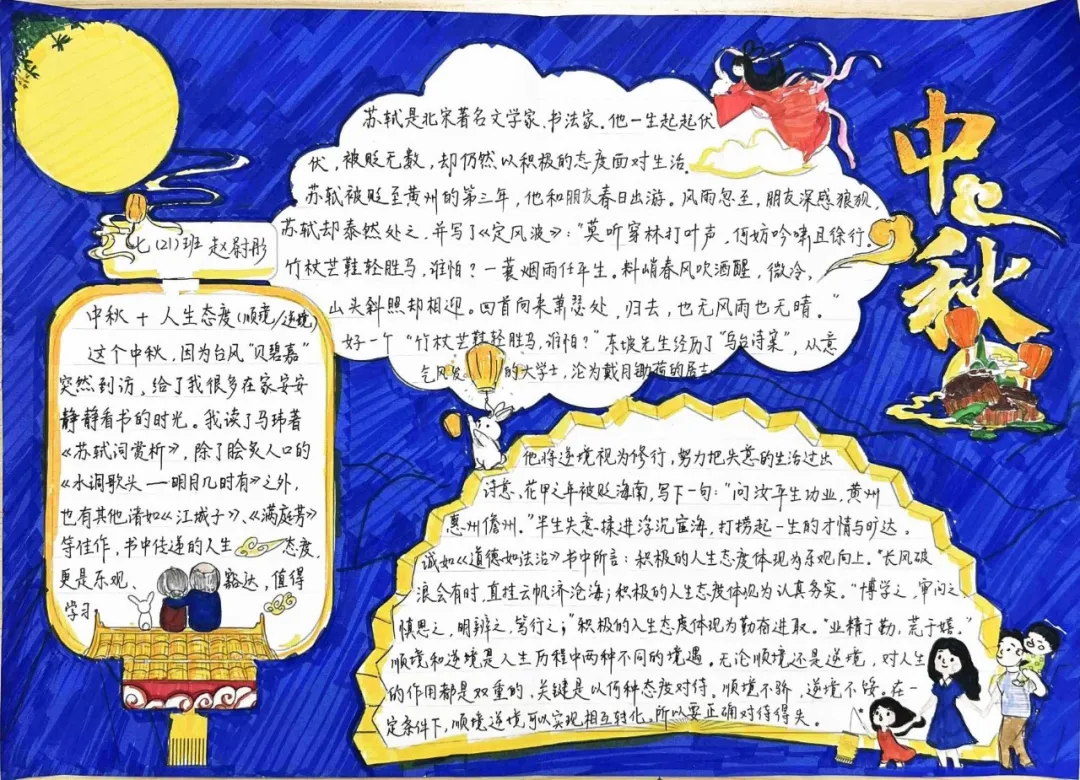 中秋
七(21)班 赵尉彤
中秋 + 人生态度(顺境/逆境)
这个中秋，因为台风"贝碧嘉"
突然到访，给了我很多在家安安
静静看书的时光。我读了马玮著
《苏轼词赏析》，除了脍炙人口的
《水调歌头——明月几时有》之外，
也有其他诸如《江城子》、《满庭芳》
等佳作，书中传递的人生态度，
更是乐观、豁达，值得
学习
苏轼是北宋著名文学家、书法家。他一生起起伏
伏，被贬无数，却仍然以积极的态度面对生活。
苏轼被贬至黄州的第三年，他和朋友春日出游。风雨忽至，朋友深感狼狈，
苏轼却泰然处之，并写了《定风波》："莫听穿林打叶声，何妨吟啸且徐行。
竹杖芒鞋轻胜马，谁怕？一蓑烟雨任平生。料峭春风吹酒醒，微冷，
山头斜照却相迎。回首向来萧瑟处，归去，也无风雨也无晴。"
好一个"竹杖芒鞋轻胜马，谁怕？"东坡先生经历了"乌台诗案"，从意
气风发的大学士，沦为戴月锄荷的居士
他将逆境视为修行，努力把失意的生活过出
诗意、花甲之年被贬海南，写下一句："问汝平生功业，黄州
惠州儋州。"半生失意揉进浮沉宦海，打捞起一生的才情与旷达。
诚如《道德如法治》书中所言：积极的人生态度体现为乐观向上。"长风破
浪会有时，直挂云帆济沧海；积极的人生态度体现为认真务实。"博学之，审问之，
慎思之，明辨之，笃行之；"积极的人生态度体现为勤奋进取。"业精于勤，荒于嬉。"
顺境和逆境是人生历程中两种不同的境遇。无论顺境还是逆境，对人生
的作用都是双重的，关键是以何种态度对待。顺境不骄，逆境不馁。在一
定条件下，顺境逆境可以实现相互转化。所以要正确对待得失。